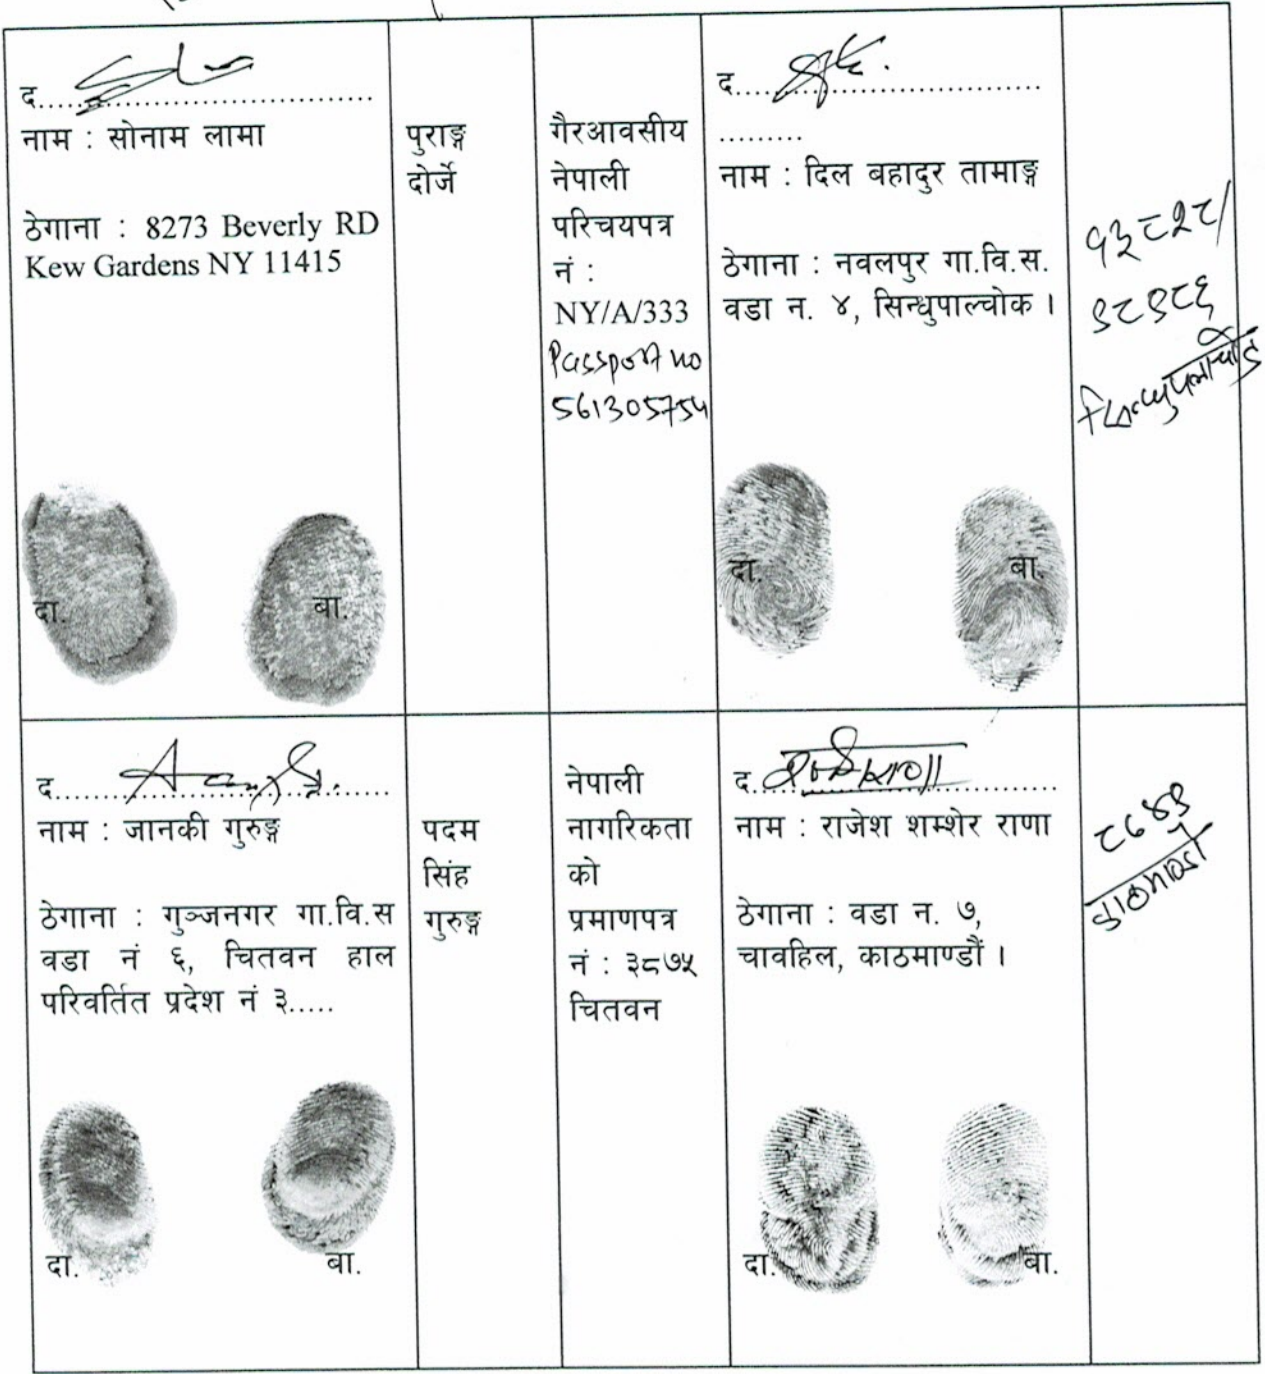 द....................................
नाम : सोनाम लामा
ठेगाना : 8273 Beverly RD
Kew Gardens NY 11415
दा.
बा.
पुराङ्ग
दोर्जे
गैरआवसीय
नेपाली
परिचयपत्र
नं :
NY/A/333
Passport no
561305754
द..................................
.........
नाम : दिल बहादुर तामाङ्ग
ठेगाना : नवलपुर गा.वि.स.
वडा न. ४, सिन्धुपाल्चोक ।
दा.
बा.
१३८२८/
द....................................
नाम : जानकी गुरुङ्ग
ठेगाना : गुञ्जनगर गा.वि.स
वडा नं ६, चितवन हाल
परिवर्तित प्रदेश नं ३.....
दा.
बा.
पदम
सिंह
गुरुङ्ग
नेपाली
नागरिकता
को
प्रमाणपत्र
नं : ३८७५
चितवन
द..................................
नाम : राजेश शम्शेर राणा
ठेगाना : वडा न. ७,
चावहिल, काठमाण्डौं ।
दा.
बा.
काठमाडौं